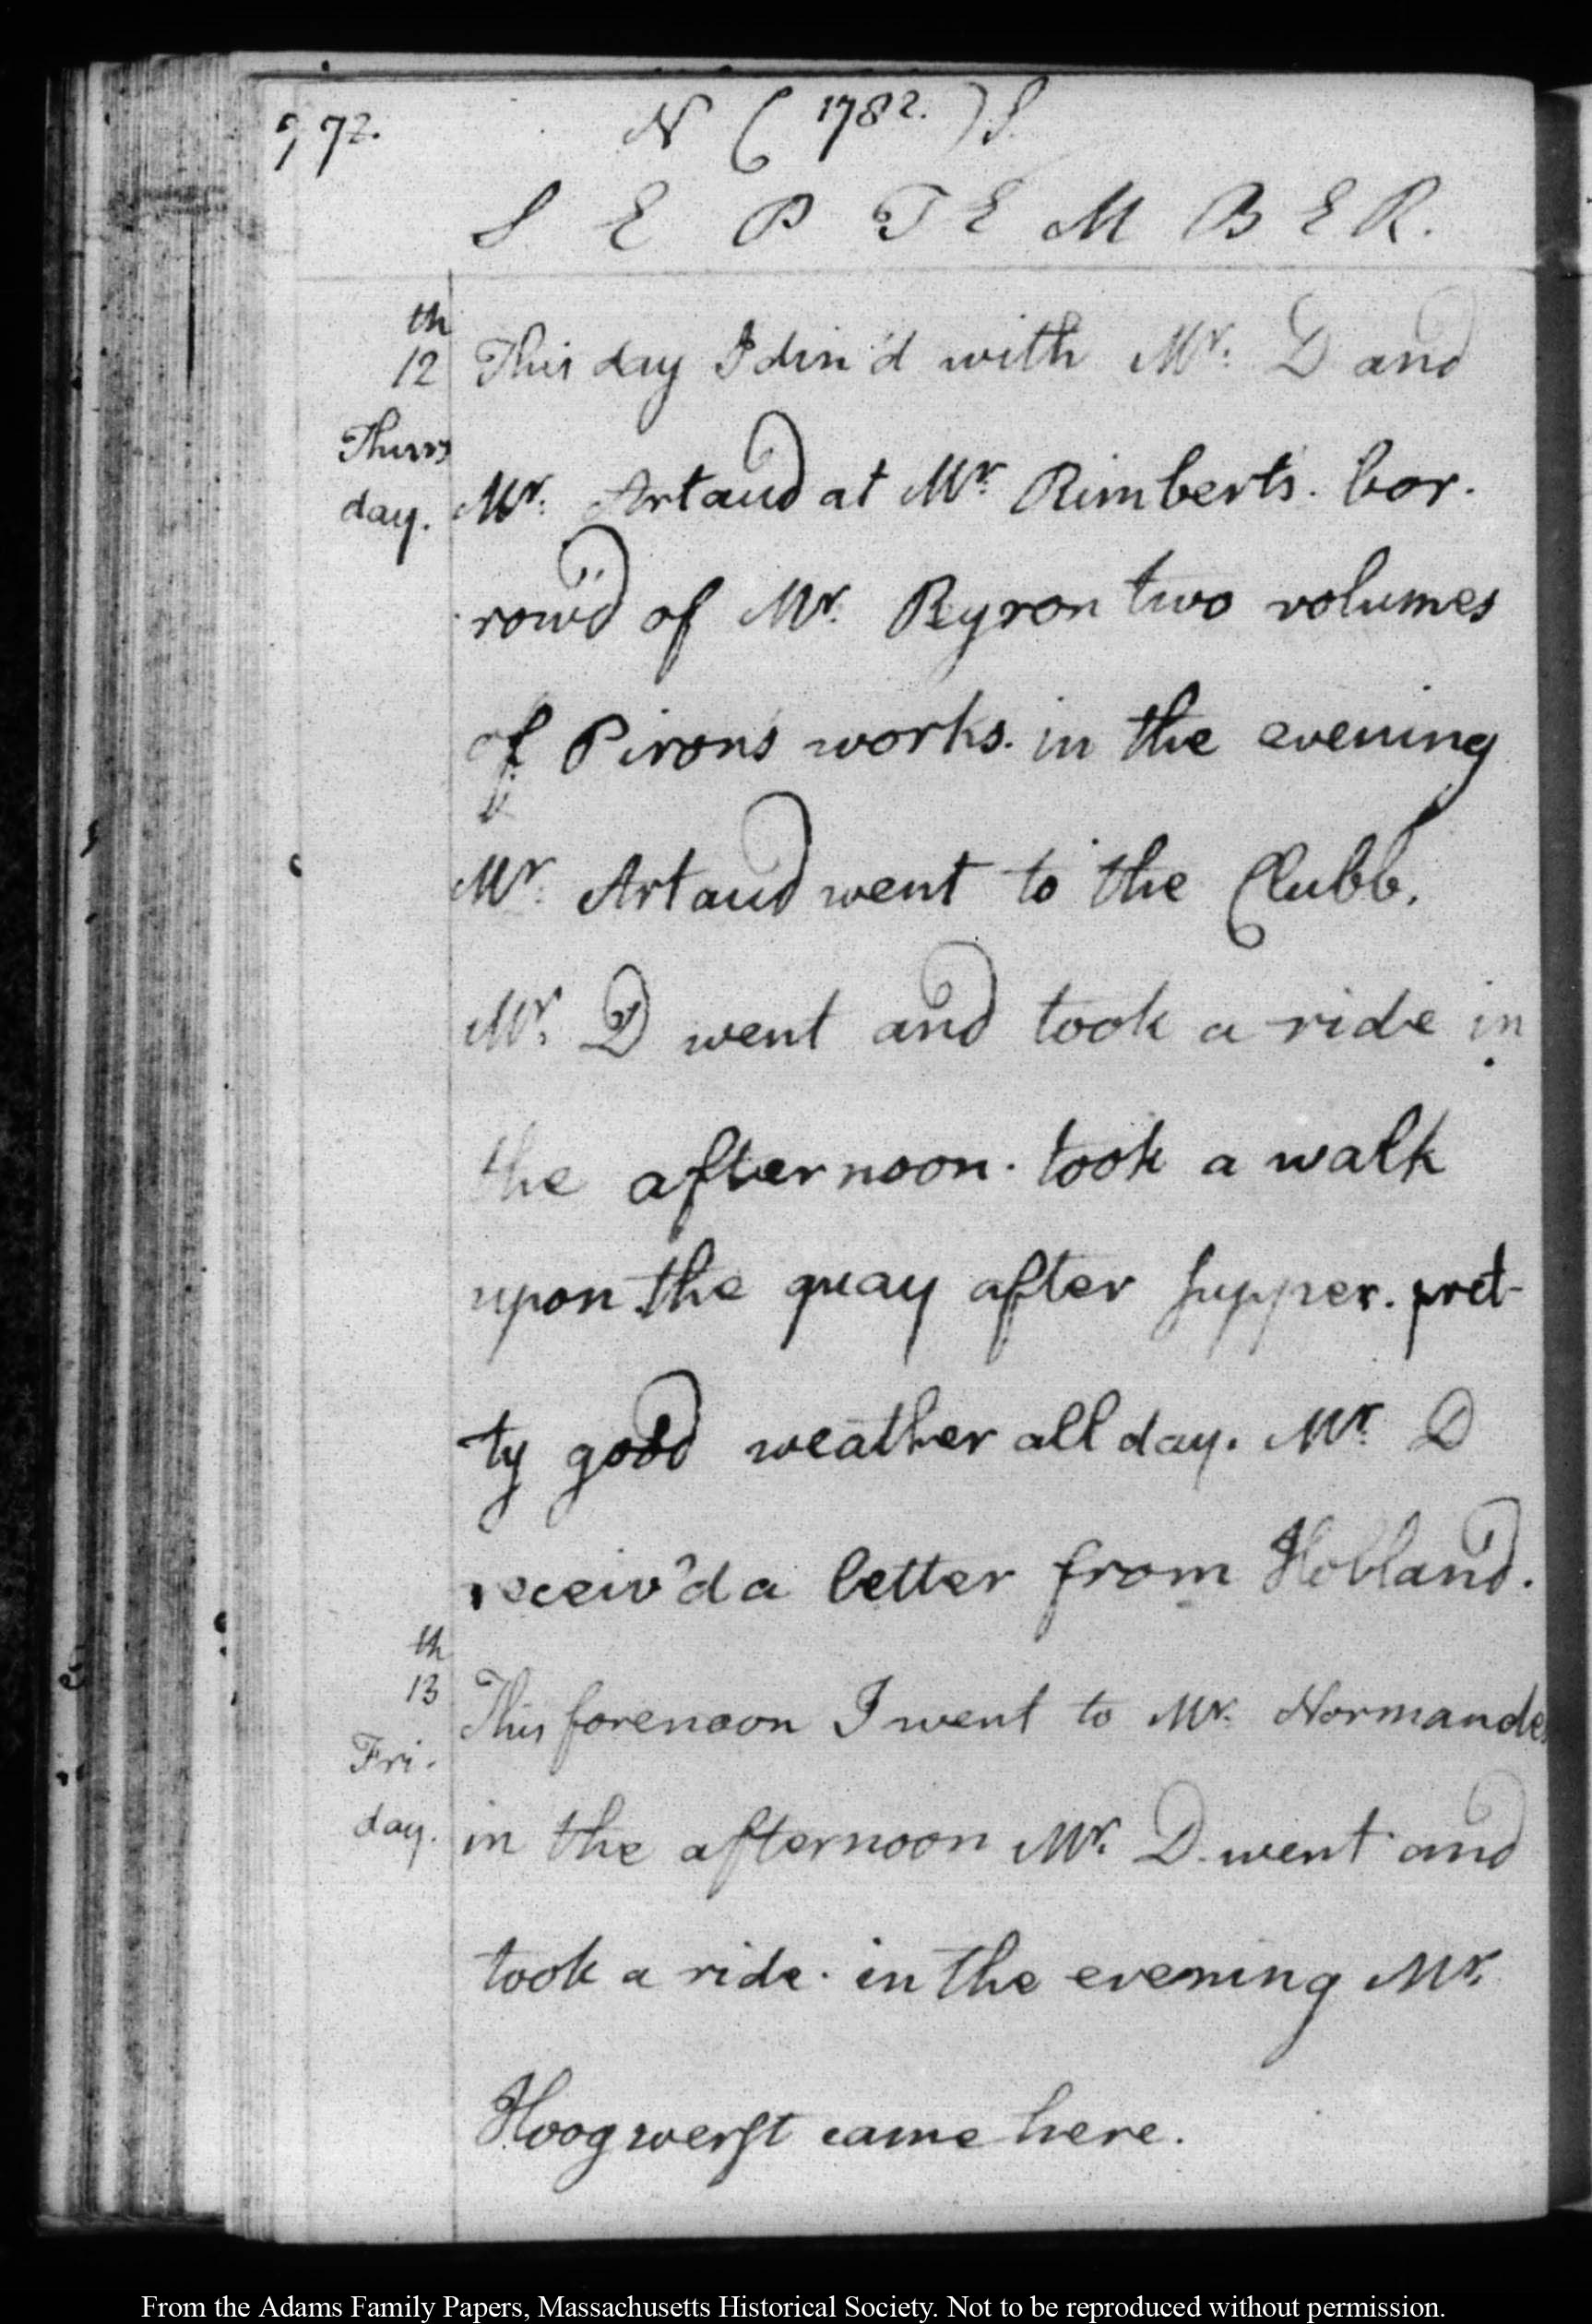 972.
N (1782.) S.
SEPTEMBER.
th
12 This day I din'd with Mr. D and
Thurs
Mr. Artaud at Mr. Rimberts. bor.
day.
row'd of Mr. Ryron two volumes
of Pirons works. in the evening
Mr. Artaud went to the Clubb.
Mr. D went and took a ride in
the afternoon. took a walk
upon the quay after supper. pret-
ty good weather all day. Mr. D
receiv'd a letter from Holland.
th
13 This forenoon I went to Mr. Normandes
Fri.
day. in the afternoon Mr. D. went and
took a ride. in the evening Mr.
Hoogwerft came here.
From the Adams Family Papers, Massachusetts Historical Society. Not to be reproduced without permission.